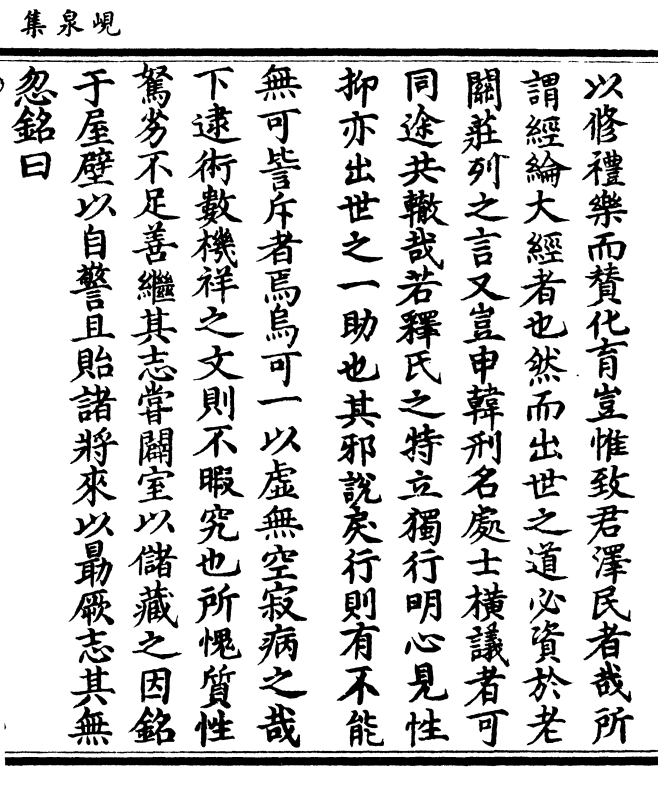 峴泉集
以修禮樂而賛化育豈惟致君澤民者哉所
謂經綸大經者也然而出世之道必資於老
關莊列之言又豈申韓刑名處士橫議者可
同途共轍哉若釋氏之特立獨行明心見性
抑亦出世之一助也其邪說戾行則有不能
無可訾斥者焉烏可一以虛無空寂病之哉
下逮術數機祥之文則不暇究也所愧質性
駑劣不足善繼其志嘗闢室以儲藏之因銘
于屋壁以自警且貽諸將來以勗厥志其無
忽銘曰